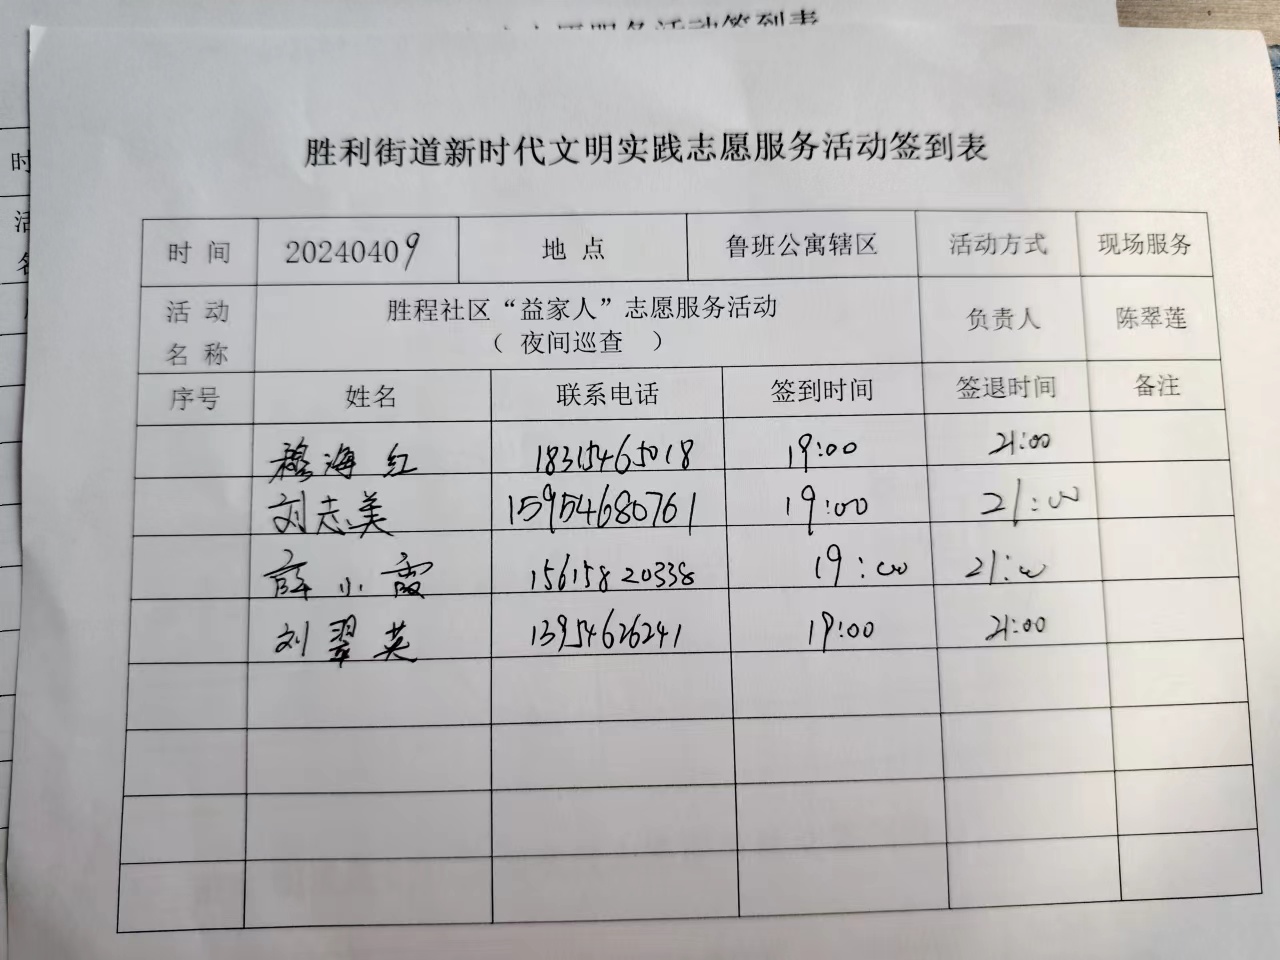 胜利街道新时代文明实践志愿服务活动签到表
时 间 20240409 地 点 鲁班公寓辖区 活动方式 现场服务
活 动 名 称 胜程社区“益家人”志愿服务活动 负责人 陈翠莲
（ 夜间巡查 ）
序号 姓名 联系电话 签到时间 签退时间 备注
穆海红 18315465018 19:00 21:00
刘志美 15954680761 19:00 21:00
薛小霞 15615820338 19:00 21:00
刘翠英 13954626241 19:00 21:00